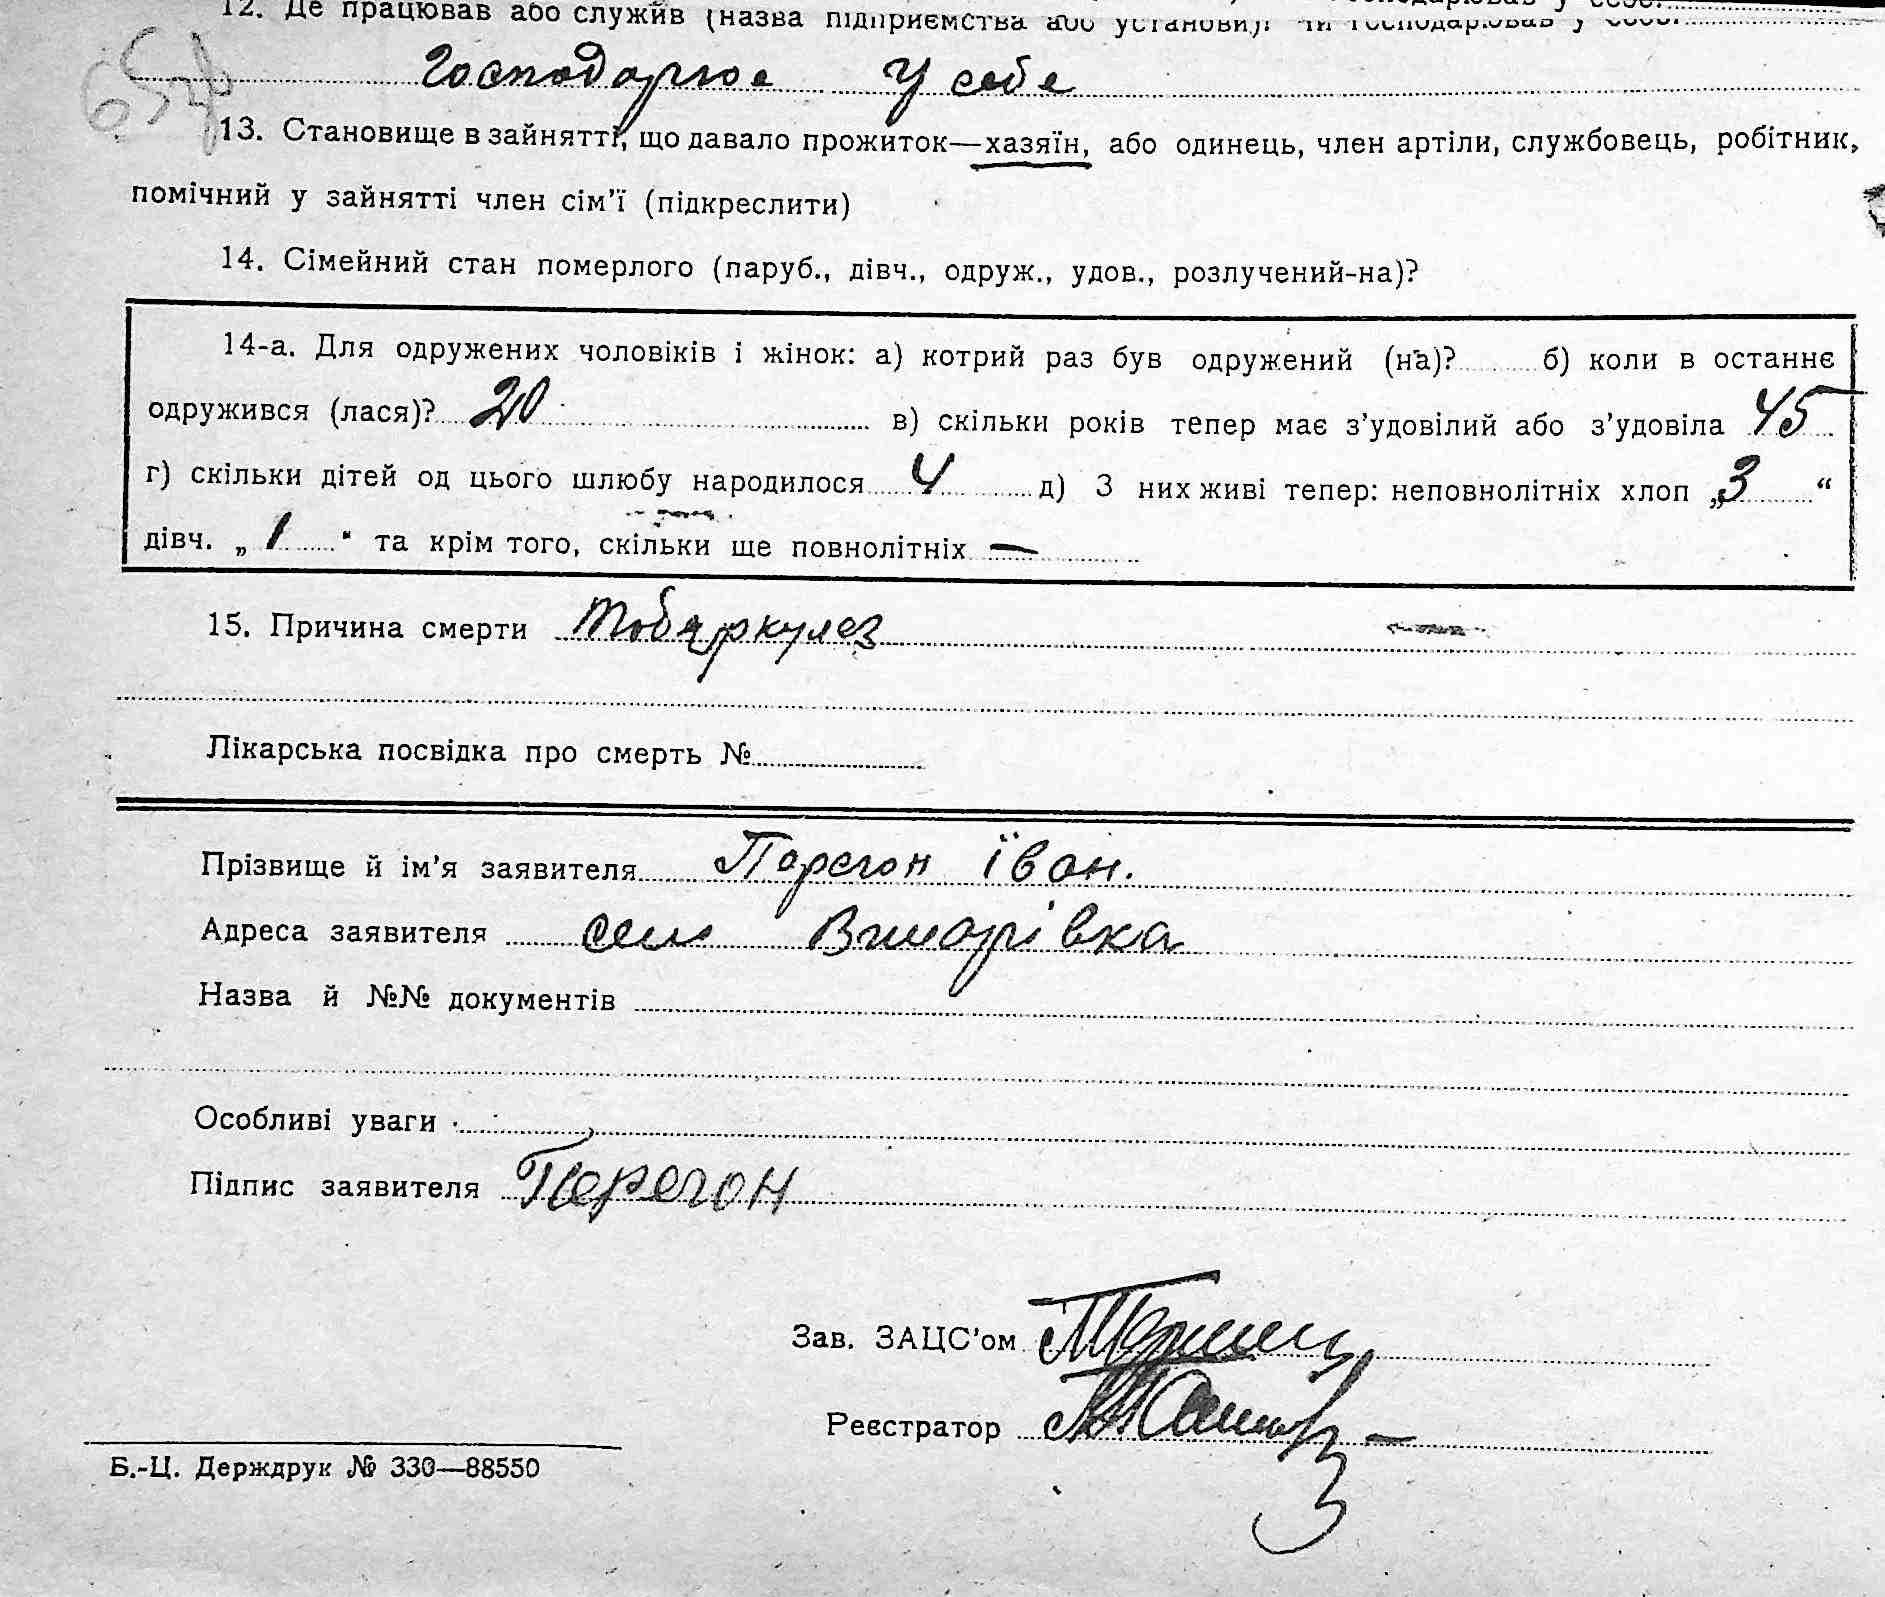 12. Де працював або служив (назва підприємства або установи). Чи господарював у себе.
Господарює у себе
13. Становище в зайнятті, що давало прожиток—хазяїн, або одинець, член артіли, службовець, робітник,
помічний у зайнятті член сім'ї (підкреслити)
14. Сімейний стан померлого (паруб., дівч., одруж., удов., розлучений-на)?
14-а. Для одружених чоловіків і жінок: а) котрий раз був одружений (на)? б) коли в останнє
одружився (лася)? 20 в) скільки років тепер має з'удовілий або з'удовіла 45
г) скільки дітей од цього шлюбу народилося 4 д) З них живі тепер: неповнолітніх хлоп „3“
дівч. „1“ та крім того, скільки ще повнолітніх —
15. Причина смерти Тобяркулез
Лікарська посвідка про смерть №
Прізвище й ім'я заявителя Перегон Їван.
Адреса заявителя село Вишарівка
Назва й №№ документів
Особливі уваги
Підпис заявителя Перегон
Зав. ЗАЦС'ом
Реєстратор
Б.-Ц. Держдрук № 330—88550